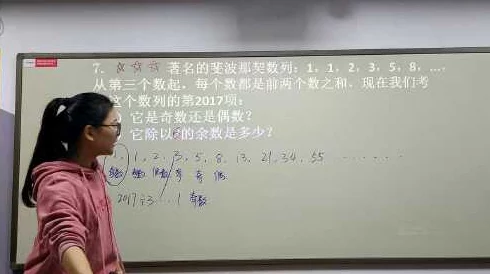 7. ☆☆☆ 著名的斐波那契数列：1，1，2，3，5，8，…，
从第三个数起，每个数都是前两个数之和，现在我们考
这个数列的第2017项：
）它是奇数还是偶数？
）它除以 的余数是多少？
1, 1, 2, 3, 5, 8, 13, 21, 34, 55 ......
偶数 奇 奇 偶
2017÷3 ... 1 奇数